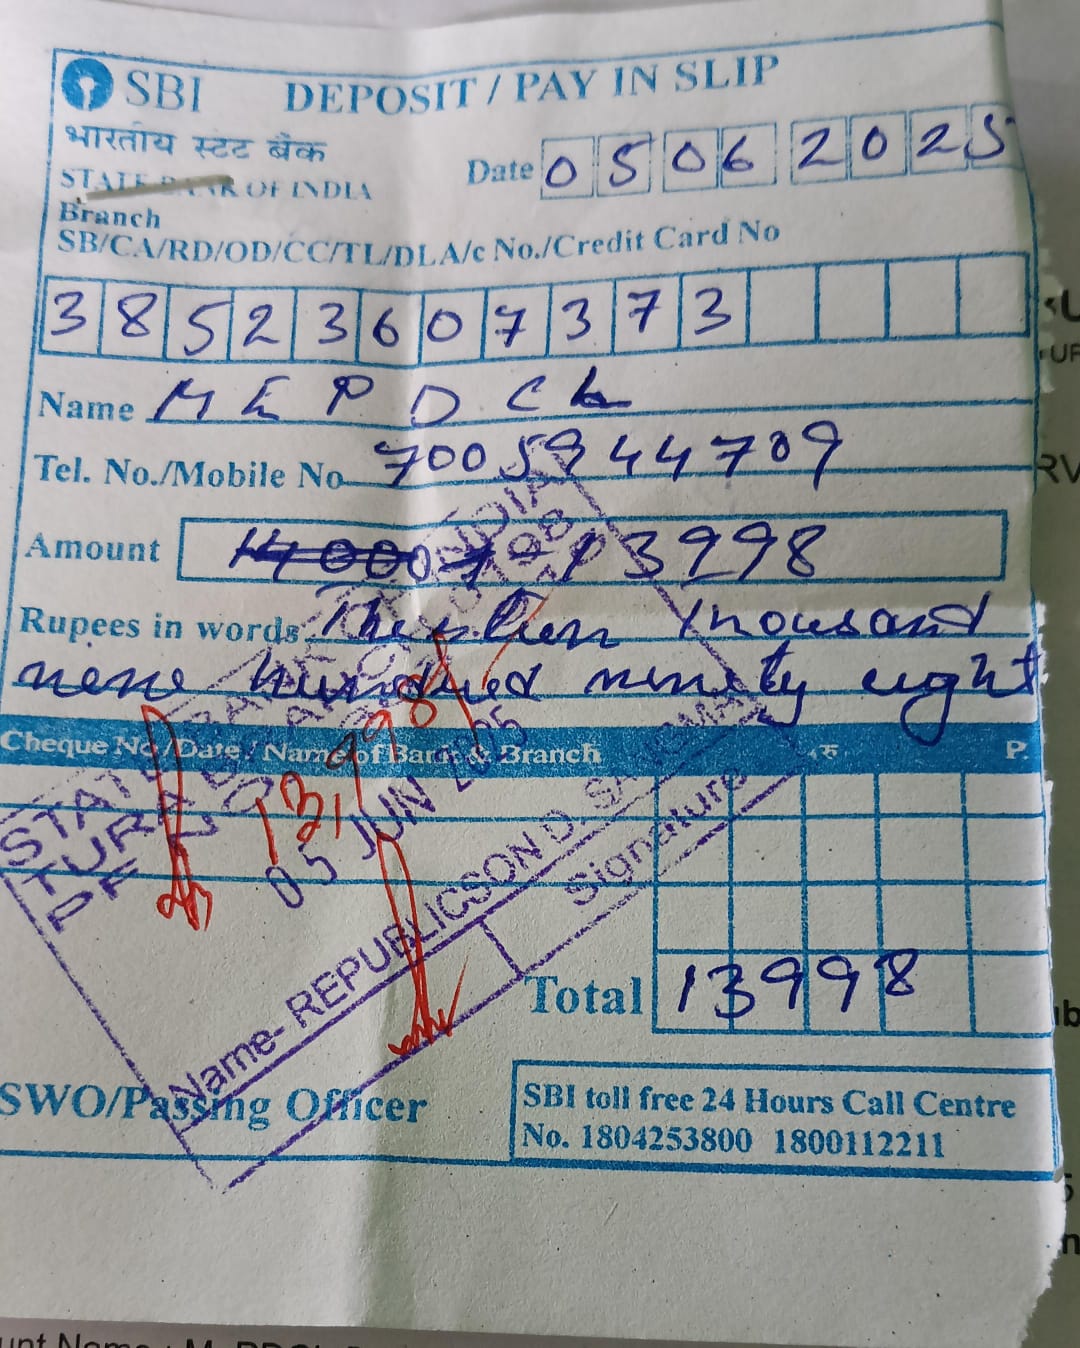 SBI DEPOSIT / PAY IN SLIP
भारतीय स्टेट बैंक
STATE BANK OF INDIA
Date 05062025
Branch
SB/CA/RD/OD/CC/TL/DLA/c No./Credit Card No
38523607373
Name MEPDCL
Tel. No./Mobile No 7005944709
Amount 14000 13998
Rupees in words Thirteen thousand
nine hundred ninety eight
Cheque No/Date / Name of Bank & Branch रु. P.
13,998/
05 JUN 2025
Name- REPUBLICSON D. SANGMA
Signature
Total 13998
SWO/Passing Officer
SBI toll free 24 Hours Call Centre
No. 1804253800 1800112211